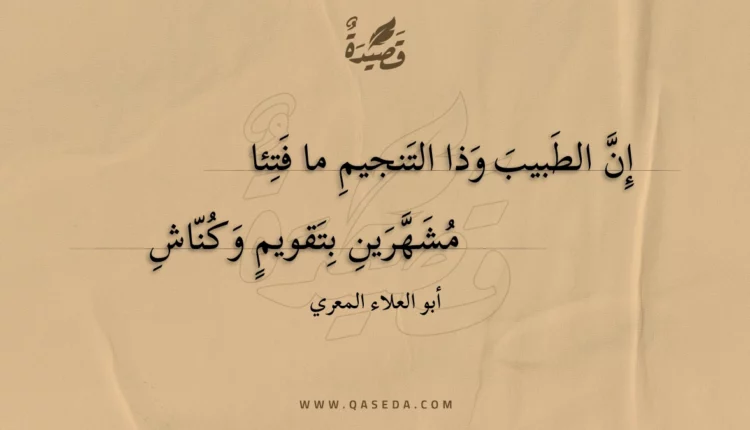 قَصِيْدَةٌ
إِنَّ الطَبيبَ وَذا التَنجيمِ ما فَتِئا
مُشَهَّرَينِ بِتَقويمٍ وَكُنّاشِ
أبو العلاء المعري
WWW.QASEDA.COM